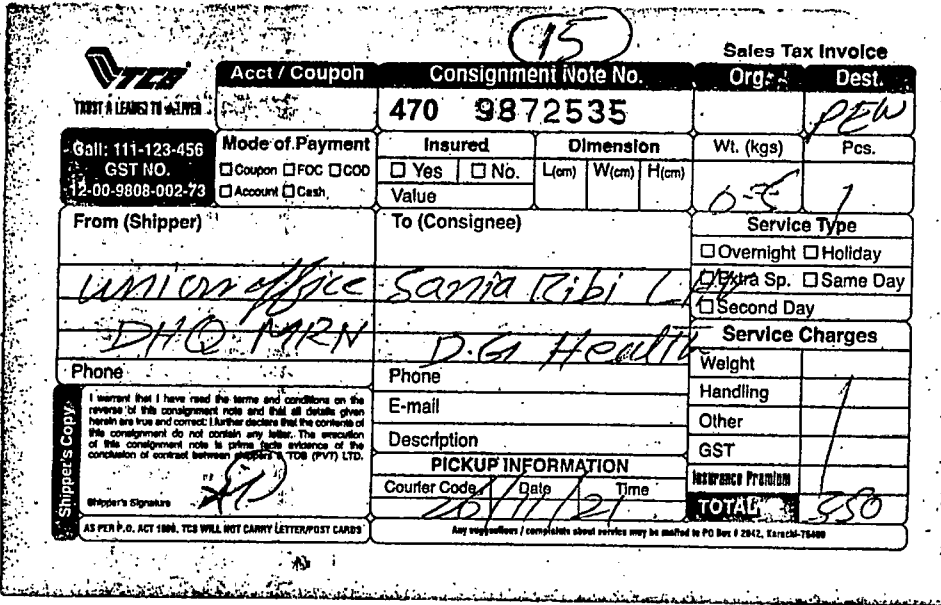 15
Sales Tax Invoice
TCS
TRUST A LEADER TO DELIVER
Acct / Coupon
Consignment Note No.
Org.
Dest.
470 9872535
PEW
Call: 111-123-456
GST NO.
12-00-9808-002-73
Mode of Payment
☐ Coupon ☐ FOC ☐ COD
☐ Account ☐ Cash
Insured
☐ Yes ☐ No.
Value
Dimension
L(cm) W(cm) H(cm)
Wt. (kgs)
Pcs.
0-5
1
From (Shipper)
To (Consignee)
Service Type
☐ Overnight ☐ Holiday
☐ Extra Sp. ☐ Same Day
☐ Second Day
union office
DHQ MRN
Sania Bibi
D.G Health
Phone
Phone
E-mail
Description
Service Charges
Weight
Handling
Other
GST
Insurance Premium
TOTAL 350
Shipper's Copy
I warrent that I have read the terms and conditions on the
reverse of this consignment note and that all details given
herein are true and correct. I further declare that the contents of
this consignment do not contain any letter. The execution
of this consignment note is prima facie evidence of the
conclusion of contract between shippers & TCS (PVT) LTD.
Shipper's Signature
PICKUP INFORMATION
Courier Code Date Time
26/11/21
AS PER P.O. ACT 1898, TCS WILL NOT CARRY LETTER/POST CARDS
Any suggestions / complaints about service may be mailed to PO Box # 2042, Karachi-75400